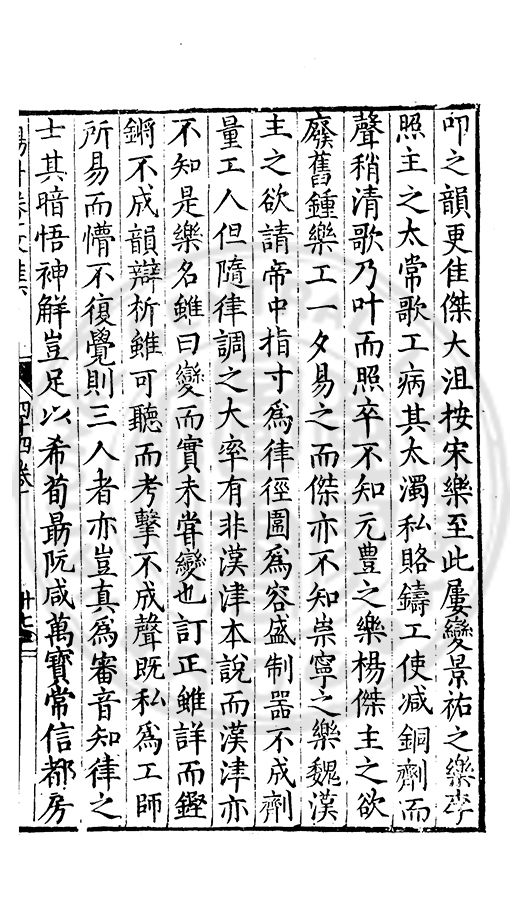 叩之韻更隹傑大沮按宋樂至此屢變景祐之樂李
照主之太常歌工病其太濁私賂鑄工使减銅劑而
聲稍清歌乃叶而照卒不知元豊之樂楊傑主之欲
廢舊鍾樂工一夕易之而傑亦不知崇寧之樂魏漢
主之欲請帝中指寸爲律徑圍爲容盛制器不成劑
量工人但隨律調之大率有非漢津本說而漢津亦
不知是樂名雖曰變而實未甞變也訂正雖詳而鏗
鏘不成韻辯析雖可聽而考擊不成聲既私爲工師
所易而懵不復覺則三人者亦豈真爲審音知律之
士其暗悟神解豈足以希荀勗阮咸萬寳常信都房
四十四卷